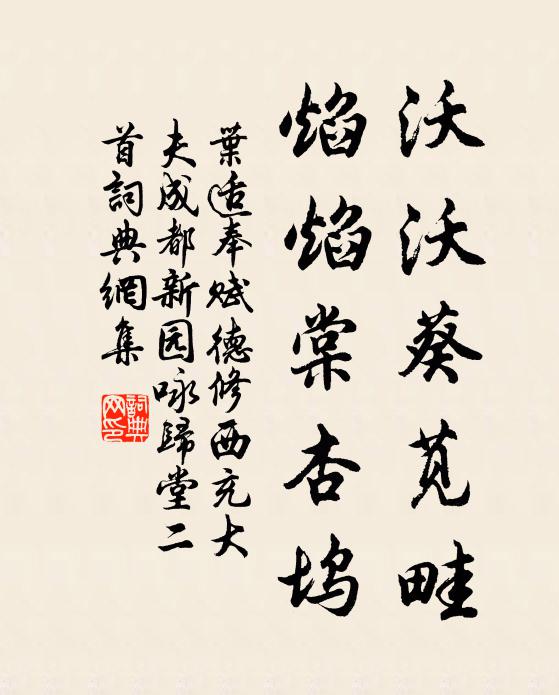 沃沃葵苋畦
焰焰棠杏坞
葉适奉赋德修西充大
夫成都新园咏歸堂二
首詞典網集
詞典网印